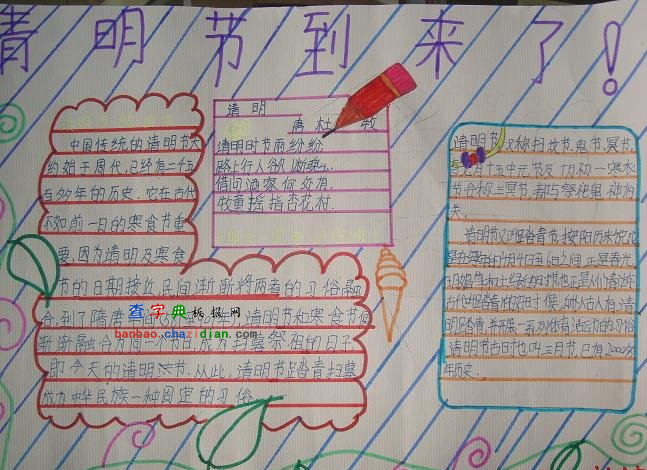 清明节到来了!
中国传统的清明节大
约始于周代,已经有二千五
百多年的历史.它在古代
不如前一日的寒食节重
要,因为清明及寒食
节的日期接近,民间渐渐将两者的习俗融
合,到了隋唐
清明节和寒食节
渐渐融合为同一个节日,成为扫墓祭祖的日子,
即今天的清明节.从此,清明节踏青扫墓
成为中华民族一种固定的习俗
清明
唐 杜牧
清明时节雨纷纷
路上行人欲断魂
借问酒家何处有,
牧童摇指杏花村.
清明节又称扫坟节.鬼节.冥节.
与七月十五中元节及十月初一寒衣
节合称三冥节,都与祭祀鬼神相
关.
清明节又叫踏青节,按阳历来说,它
是在每年的4月4日至6日之间,正是春光
明媚草木吐绿的时节,也正是人们
古代叫踏青的好时候,所以古人有清
明踏青,并开展一系列体育活动的习俗
清明节古时也叫三月节,已有2000多
年历史.
查字典板报网
banbao.chazidian.com